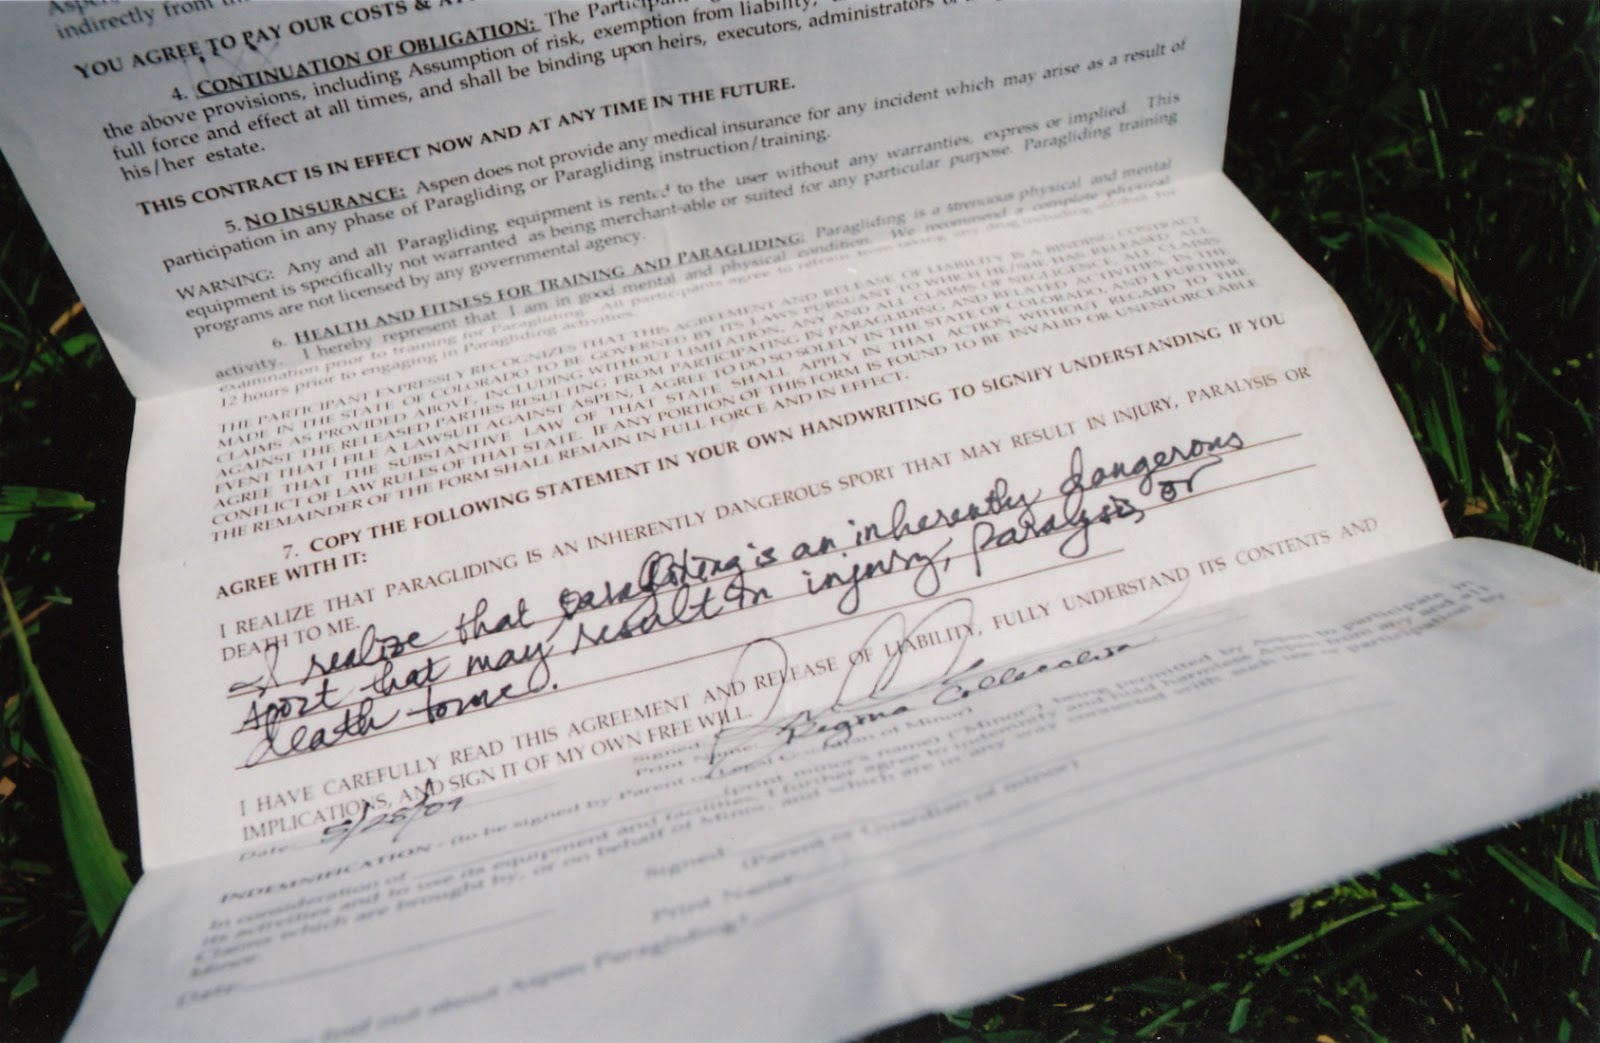 indirectly from the
YOU AGREE TO PAY OUR COSTS &
4. CONTINUATION OF OBLIGATION: The
the above provisions, including Assumption of risk, exemption from liability,
full force and effect at all times, and shall be binding upon heirs, executors, administrators
his/her estate.
THIS CONTRACT IS IN EFFECT NOW AND AT ANY TIME IN THE FUTURE.
5. NO INSURANCE: Aspen does not provide any medical insurance for any incident which may arise as a result of
participation in any phase of Paragliding or Paragliding instruction/training.
WARNING: Any and all Paragliding equipment is rented to the user without any warranties, express or implied. This
equipment is specifically not warranted as being merchant-able or suited for any particular purpose. Paragliding training
programs are not licensed by any governmental agency.
6. HEALTH AND FITNESS FOR TRAINING AND PARAGLIDING: Paragliding is a strenuous physical and mental
activity. I hereby represent that I am in good mental and physical condition. We recommend a complete physical
examination prior to training for Paragliding. All participants agree to refrain from taking any drug including alcohol for
12 hours prior to engaging in Paragliding activities.
THE PARTICIPANT EXPRESSLY RECOGNIZES THAT THIS AGREEMENT AND RELEASE OF LIABILITY IS A BINDING CONTRACT
MADE IN THE STATE OF COLORADO TO BE GOVERNED BY ITS LAWS PURSUANT TO WHICH HE/SHE HAS RELEASED ALL
CLAIMS AS PROVIDED ABOVE, INCLUDING WITHOUT LIMITATION, ANY AND ALL CLAIMS OF NEGLIGENCE, ALL CLAIMS
AGAINST THE RELEASED PARTIES RESULTING FROM PARTICIPATING IN PARAGLIDING AND RELATED ACTIVITIES. IN THE
EVENT THAT I FILE A LAWSUIT AGAINST ASPEN, I AGREE TO DO SO SOLELY IN THE STATE OF COLORADO, AND I FURTHER
AGREE THAT THE SUBSTANTIVE LAW OF THAT STATE SHALL APPLY IN THAT ACTION WITHOUT REGARD TO THE
CONFLICT OF LAW RULES OF THAT STATE. IF ANY PORTION OF THIS FORM IS FOUND TO BE INVALID OR UNENFORCEABLE
THE REMAINDER OF THE FORM SHALL REMAIN IN FULL FORCE AND IN EFFECT.
7. COPY THE FOLLOWING STATEMENT IN YOUR OWN HANDWRITING TO SIGNIFY UNDERSTANDING IF YOU
AGREE WITH IT:
I REALIZE THAT PARAGLIDING IS AN INHERENTLY DANGEROUS SPORT THAT MAY RESULT IN INJURY, PARALYSIS OR
DEATH TO ME.
I realize that paragliding is an inherently dangerous
sport that may result in injury, paralysis or
death to me.
I HAVE CAREFULLY READ THIS AGREEMENT AND RELEASE OF LIABILITY, FULLY UNDERSTAND ITS CONTENTS AND
IMPLICATIONS, AND SIGN IT OF MY OWN FREE WILL.
Signed:
Date: 5/25/07 Print Name: Regina
INDEMNIFICATION - (to be signed by Parent or Legal Guardian of Minor)
In consideration of (print minor's name) (Minor) being permitted by Aspen to participate in
its activities and to use its equipment and facilities, I further agree to indemnify and hold harmless Aspen from any and all
Claims which are brought by, or on behalf of Minor, and which are in any way connected with such use or participation by
Minor.
Signed:
(Parent or Guardian of minor)
Date: Print Name:
find out about Aspen Paragliding?